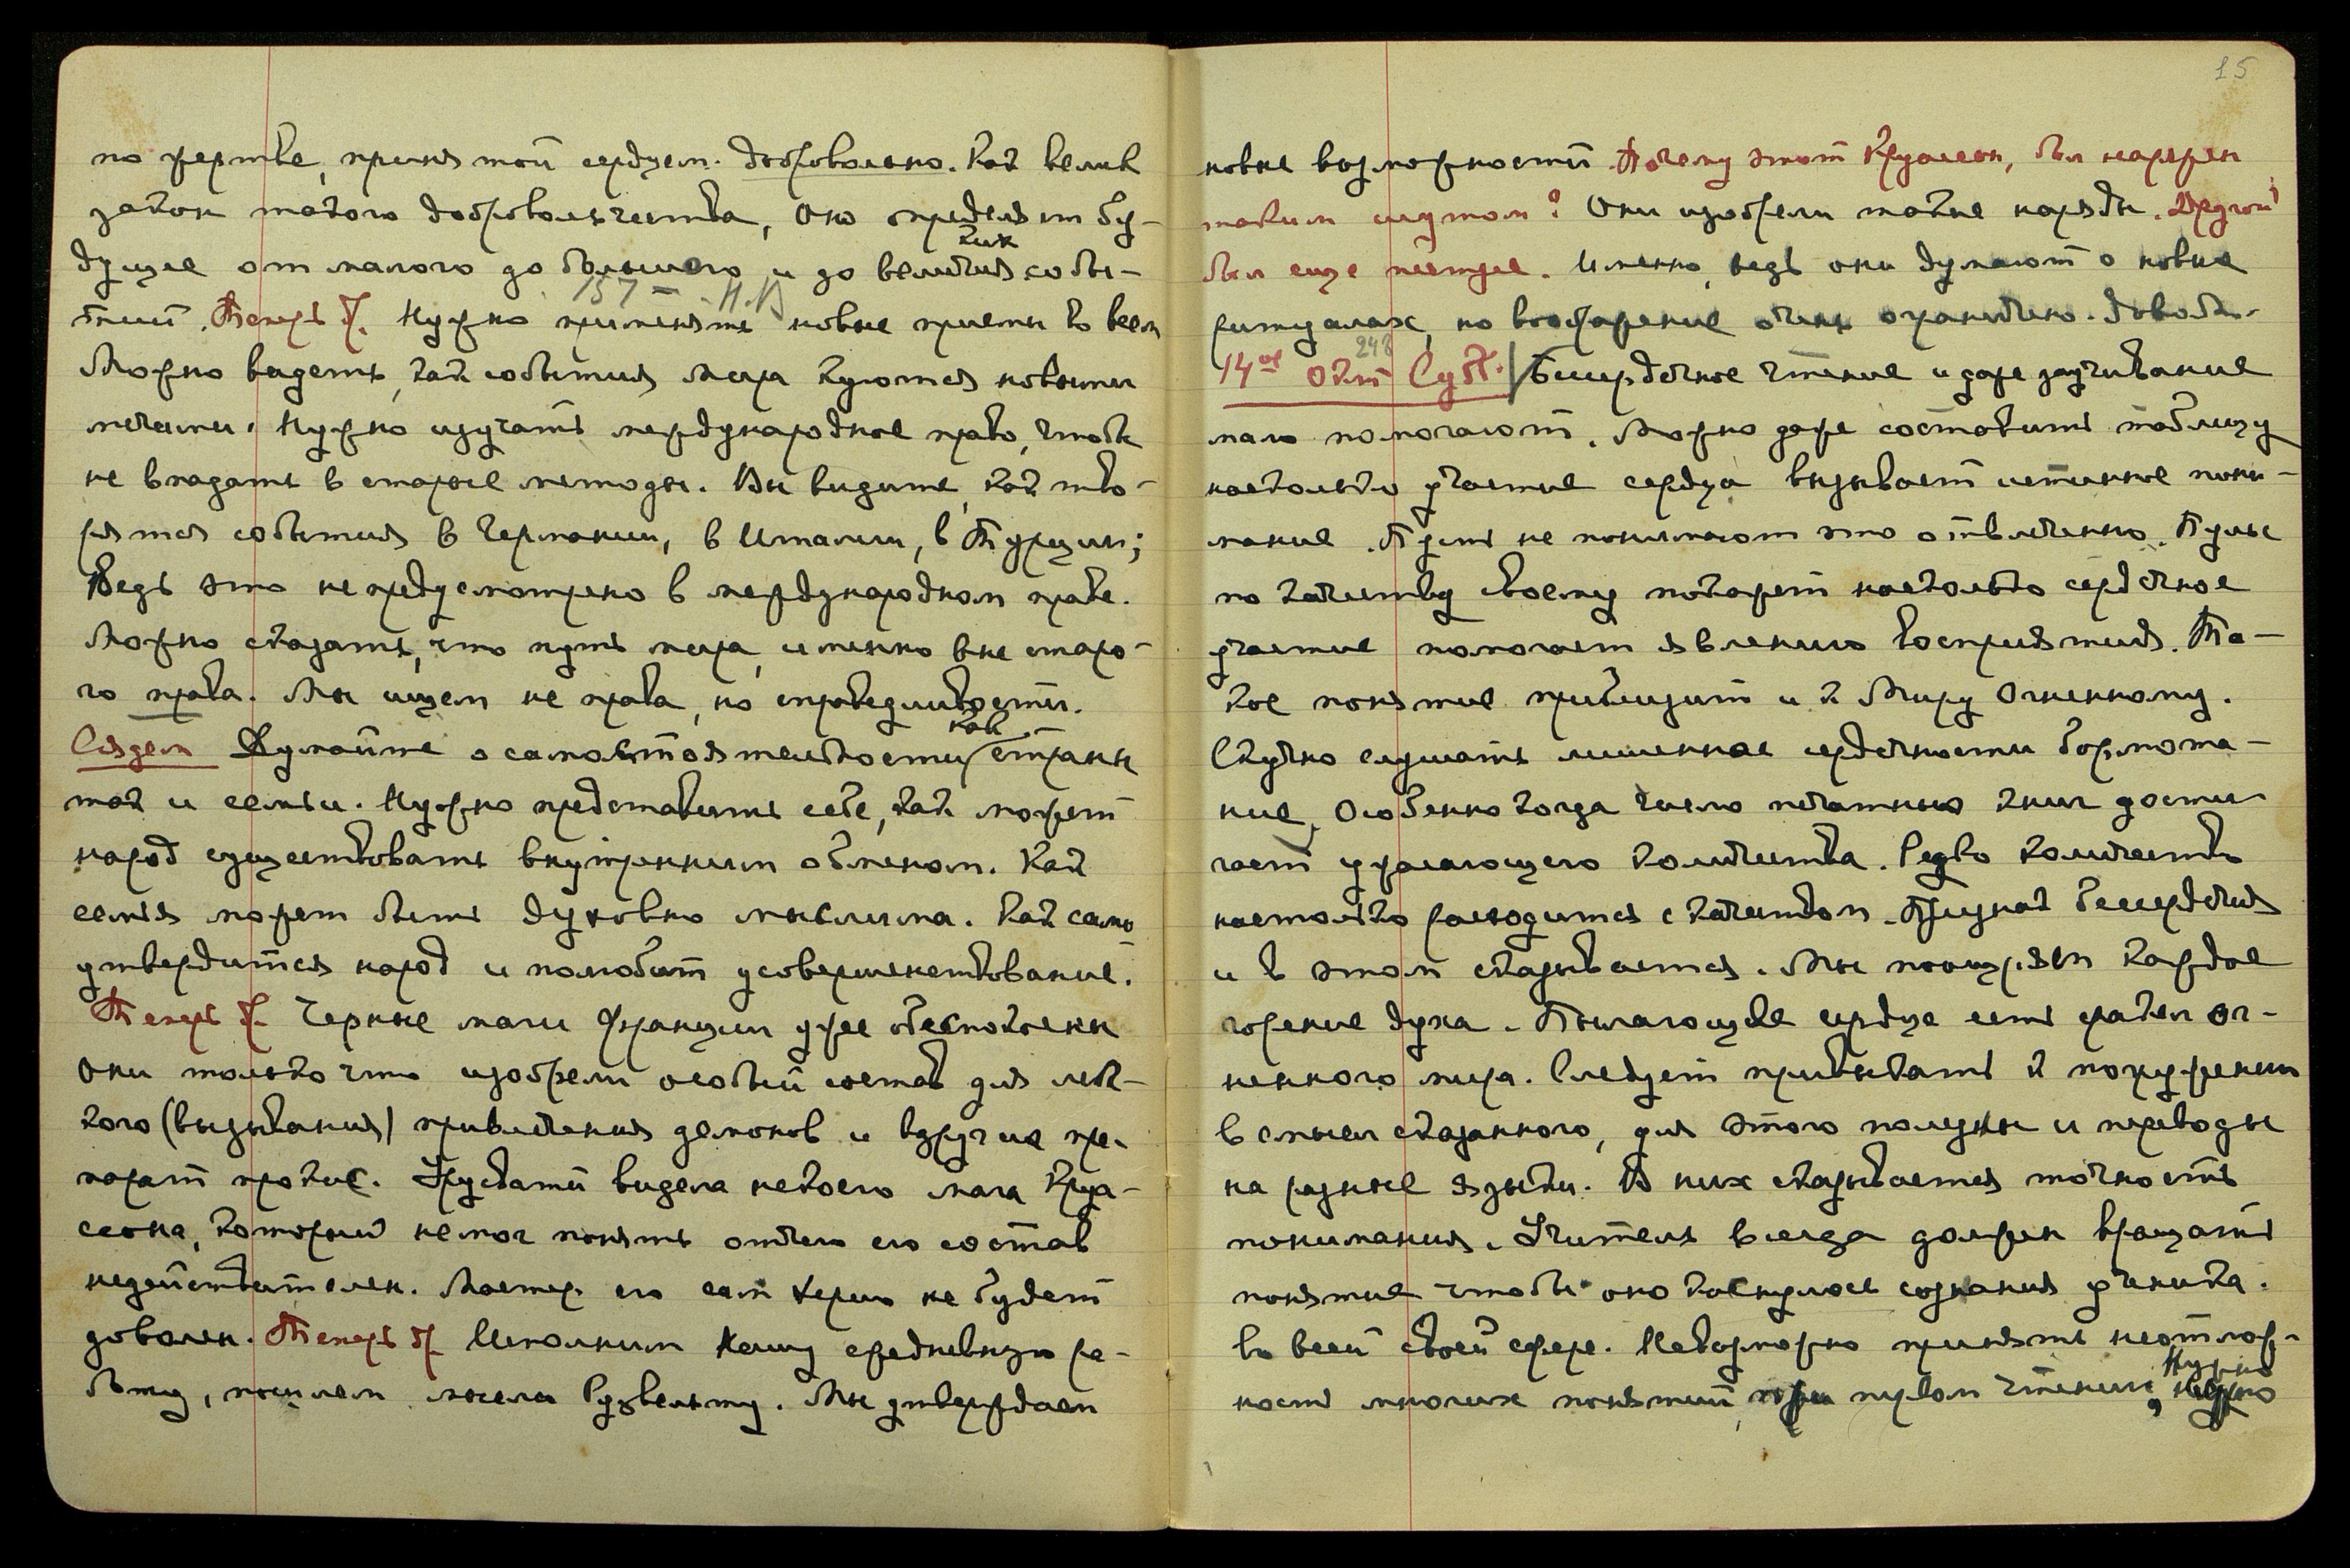 по жертве, принятой сердцем. добровольно. Как велик
закон такого добровольчества, Оно определяет бу-
дущее от малого до большого и до величия собы-
тий. Теперь др. Нужно применять новые приемы во всем
157 – Н.В
Можно видеть, как события мира куются новыми
мечами. Нужно изучать международное право, чтобы
не впадать в старые методы. Вы видите, как тво-
рятся события в Германии, в Италии, в Турции;
Ведь это непредусмотрено в международном праве.
Можно сказать, что путь мира, именно вне старо-
го права. Мы ищем не права, но справедливости.
Сядем Думайте о самостоятельности как страны
так и семьи. Нужно представить себе, как может
народ существовать внутренним обменом. Как
семья может быть духовно мыслима. Как само
утвердится народ и полюбит усовершенствование.
Теперь др. Черные маги Франции уже обеспокоены
Они только что изобрели особый состав для лег-
кого (вызывания) привлечения демонов и вдруг не пре-
парат прокис. Урусвати видела некоего мага Круа-
сеона, который не мог понять отчего его состав
недействителен. Мастер его не будет
доволен. Теперь др. Исполним Нашу срединную ра-
боту, пошлем мысли Рузвельту. Мы утверждаем
15
новые возможности Почему этот Круасеон, был наряжен
таким шутом? Они изобрели такие наряды. Другой
был еще пестрее. Именно, ведь они думают о новых
ритуалах, но воображение очень ограничено. Довольно.
248
14ое Окт Субб. Бессердечное чтение и даже заучивание
мало помогают. Можно даже составить таблицу
насколько участие сердца вызывает истинное пони-
мание. Пусть не понимают это отвлеченно. Пульс
по качеству своему покажет насколько сердечное
участие помогает явлению восприятия. Та-
кое понятие приблизит и к Миру Огненному.
Скучно слушать лишенное сердечности бормота-
ние, Особенно когда число печатных книг дости-
гает ужасающего количества. Редко количество
настолько расходится с качеством. Признак бессердечия
и в этом сказывается. Мы поощряем каждое
горение духа. Пылающее сердце есть факел Ог-
ненного мира. Следует привыкать к погружению
в смысл сказанного, для этого полезны и переводы
на разные языки. В них сказывается точность
понимания. Учитель всегда должен вращать
понятие чтобы оно коснулось сознания ученика.
во всей своей сфере. Невозможно принять неотлож-
ность многих понятий, при первом чтении, Нужно